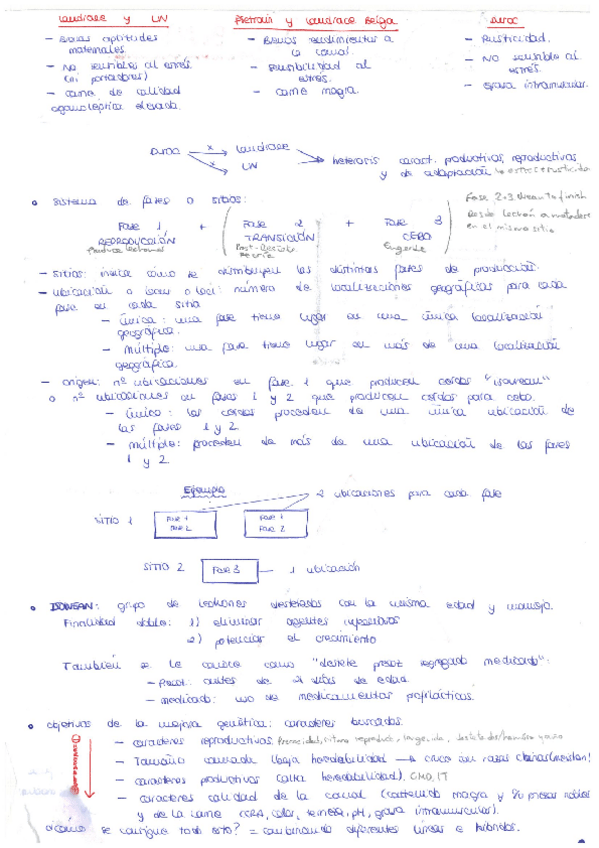 Landrace y LW
Pietrain y Landrace Belga
Duroc
- Buenas aptitudes maternales.
- No sensibles al estrés. (si portadores)
- carne de calidad organoléptica elevada.
- Buenos rendimientos a la canal.
- sensibilidad al estrés.
- carne magra.
- Rusticidad.
- NO sensible al estrés.
- grasa intramuscular.
DUROC x Landrace
x LW
heterosis caract. productivas, reproductivas
y de adaptación
• Sistema de fases o sitios:
FASE 1 + FASE 2 + FASE 3
REPRODUCCIÓN TRANSICIÓN CEBO
Produce lechones
Engorde
Fase 2+3 Wean to finish
Desde lechón a matadero
en el mismo sitio
- sitios: indica cómo se distribuyen las distintas fases de producción.
- ubicación o loci: número de localizaciones geográficas para cada
fase en cada sitio
- única: una fase tiene lugar en una única localización
geográfica.
- múltiple: una fase tiene lugar en más de una localización
geográfica.
- origen: nº ubicaciones en fase 1 que producen cerdos "isowean"
o nº ubicaciones en fases 1 y 2 que producen cerdos para cebo.
- único: los cerdos proceden de una única ubicación de
las fases 1 y 2
- múltiple: proceden de más de una ubicación de las fases
1 y 2.
Ejemplo
2 ubicaciones para cada fase
SITIO 1
FASE 1
FASE 2
FASE 1
FASE 2
SITIO 2
FASE 3
1 ubicación
• ISOWEAN: grupo de lechones destetados con la misma edad y manejo.
Finalidad doble: 1) eliminar agentes infecciosos
2) potenciar el crecimiento
También se le conoce como "destete precoz segregado medicado":
- Precoz: antes de 21 días de edad.
- medicado: uso de medicamentos profilácticos.
• objetivos de la mejora genética: caracteres buscados.
- caracteres reproductivos. Precocidad, ritmo reproduct, longevida,
- Tamaño camada (baja heredabilidad → cruce con razas chinas (Meishan)
- caracteres productivos (alta heredabilidad). GMD, IT
- caracteres calidad de la canal (contenido magra y % piezas nobles)
y de la carne (CRA, color, terneza, pH, grasa intramuscular).
¿Cómo se consigue todo esto? = combinando diferentes líneas e híbridos.